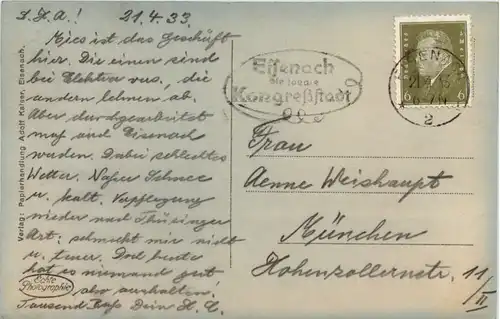 L. A.! 21.4.33.
Mies ist das Geschäft
hier. Die einen sind
bei Elektra was, die
andern lehnen ab.
Aber durchgearbeitet
muß auch Eisenach
werden. Dabei schlechtes
Wetter. Naßer Schnee
u. kalt. Verpflegung
wieder nach Thüringer
Art: schmeckt mir nicht
u. teuer. Dort
hat es niemand gut
also aushalten!
Tausend Dein H. C.
Verlag: Papierhandlung Adolf Kaiser, Eisenach.
Echte
Photographie
Eisenach
die ideale
Kongreßstadt
EISENACH
21.4.33
2
6
Frau
Aenne Weishaupt
München
Hohenzollernstr. 11/II